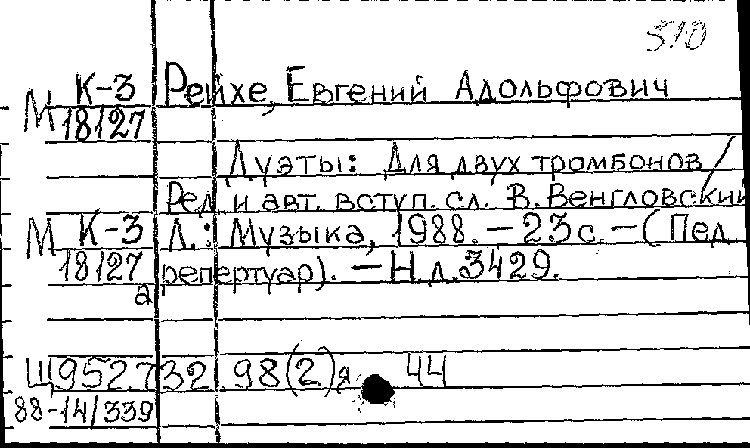 510
М К-3 Рейхе, Евгений Адольфович
18127
Дуэты: Для двух тромбонов /
Ред. и авт. вступ. сл. В. Венгловский
М К-3 Л.: Музыка, 1988. — 23 с. — (Пед.
18127 репертуар). — Н.д. 3429.
а
Щ952.732.98(2)я 44
88-14/339